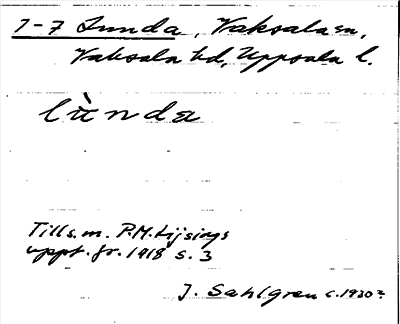 1-7 Lunda, Vaksala sn,
Vaksala hd, Uppsala l.
lùnda
Tills. m. P.M. Lijsings
uppt. fr. 1918 s. 3
J. Sahlgren c. 1930?